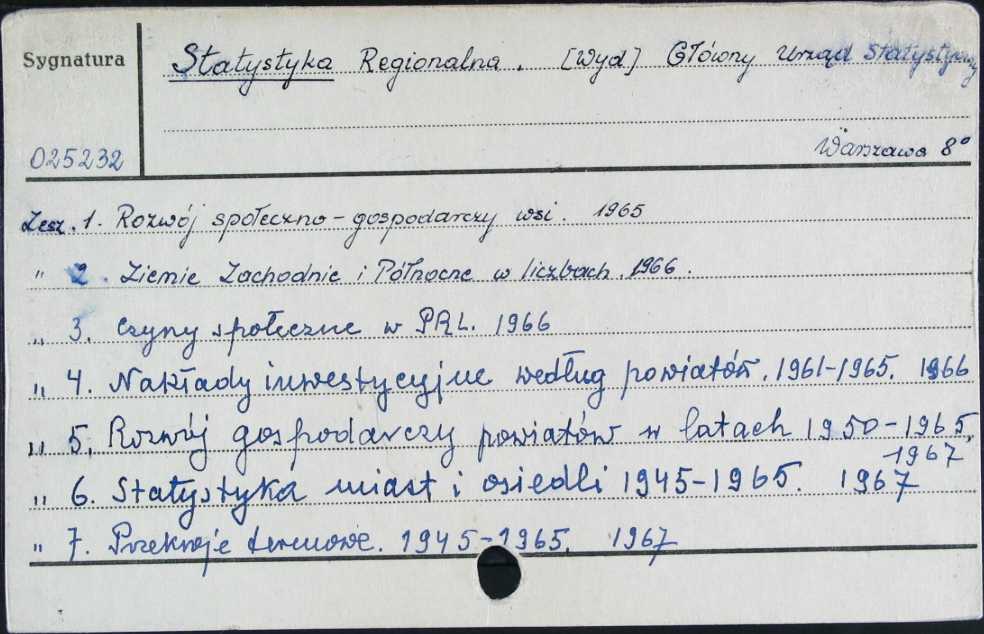 Sygnatura
Statystyka Regionalna. [Wyd] Główny Urząd Statystyczny
025232
Warszawa 8°
Zesz. 1. Rozwój społeczno-gospodarczy wsi. 1965
" 2. Ziemie Zachodnie i Północne w liczbach. 1966.
" 3. Czyny społeczne w PRL. 1966
" 4. Nakłady inwestycyjne według powiatów. 1961-1965. 1966
" 5. Rozwój gospodarczy powiatów w latach 1950-1965.
1967
" 6. Statystyka miast i osiedli 1945-1965. 1967
" 7. Przekroje terenowe. 1945-1965. 1967